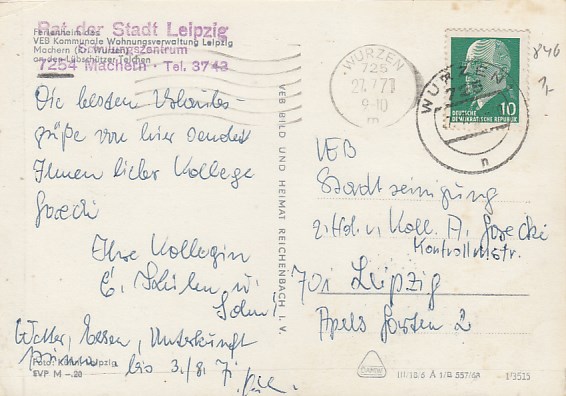 Rat der Stadt Leipzig
Ferienheim des
VEB Kommunale Wohnungsverwaltung Leipzig
Schulungszentrum
Machern (Kr. Wurzen)
an den Lübschützer Teichen
7254 Machern · Tel. 3743
WURZEN
725
9-10
m
WURZEN
725
n
10
DEUTSCHE
DEMOKRATISCHE REPUBLIK
846
Die besten Urlaubs-
grüße von hier sendet
Ihnen lieber Kollege
Gorecki
Ihre Kollegin
E.
u.
Sohn!
Wetter, Essen, Unterkunft
bis 3./8. 71
VEB BILD UND HEIMAT REICHENBACH I. V.
VEB
Stadtreinigung
z. Hd. v. Koll. A. Gorecki
Kontrollmstr.
701 Leipzig
Apels Garten 2
Foto: Leipzig
EVP M -.20
III/18/6 A 1/B 557/68
1/3515